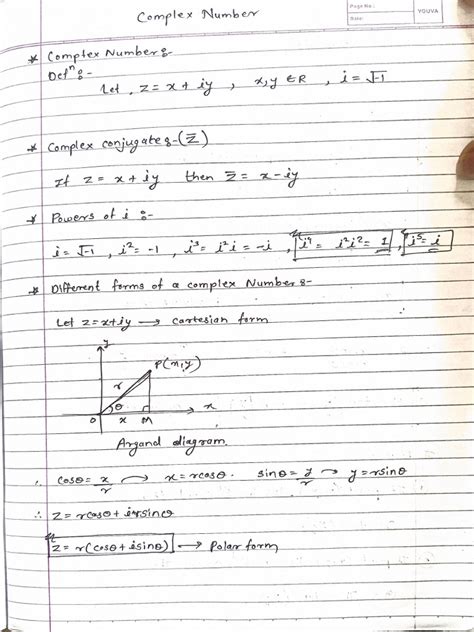 Complex Number
Page No :
Date
YOUVA
* Complex Number :-
Defⁿ :-
Let, z = x + iy , x, y ∈ R , i = √-1
* Complex conjugate :- (z̅)
If z = x + iy then z̅ = x - iy
* Powers of i :-
i = √-1 , i² = -1 , i³ = i² i = -i , i⁴ = i² i² = 1 , i⁵ = i
* Different forms of a complex Number :-
Let z = x+iy → cartesian form
y
P(x,y)
r
θ
O x M x
Argand diagram
∴ cosθ = x/r → x = rcosθ . sinθ = y/r → y = rsinθ
∴ z = rcosθ + irsinθ
z = r(cosθ + isinθ) → Polar form